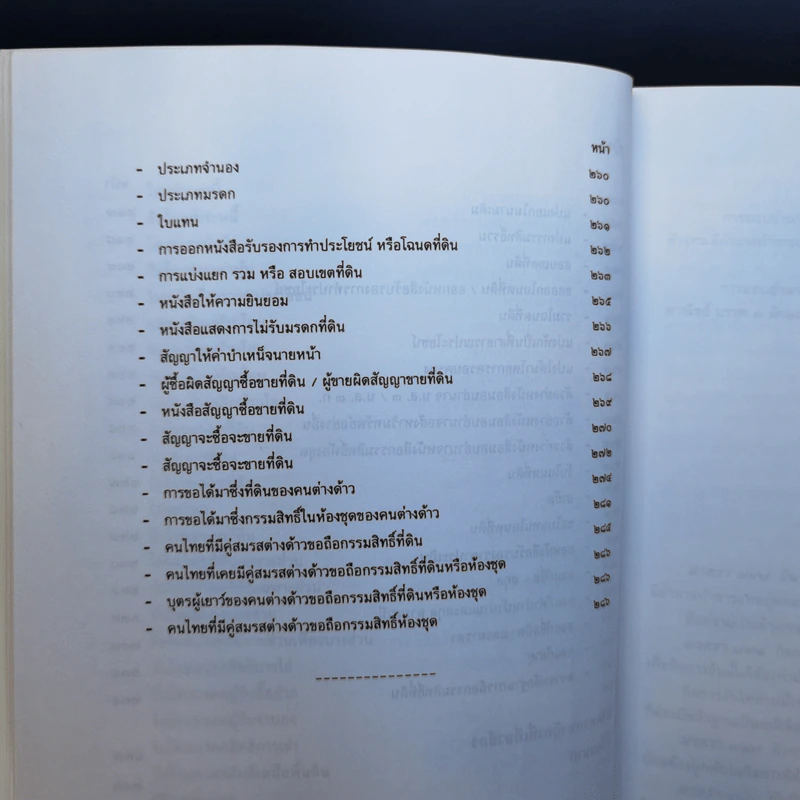 หน้า
- ประเภทจำนอง ๒๖๐
- ประเภทมรดก ๒๖๐
- ใบแทน ๒๖๑
- การออกหนังสือรับรองการทำประโยชน์ หรือโฉนดที่ดิน ๒๖๒
- การแบ่งแยก รวม หรือ สอบเขตที่ดิน ๒๖๓
- หนังสือให้ความยินยอม ๒๖๕
- หนังสือแสดงการไม่รับมรดกที่ดิน ๒๖๖
- สัญญาให้ค่าบำเหน็จนายหน้า ๒๖๗
- ผู้ซื้อผิดสัญญาซื้อขายที่ดิน / ผู้ขายผิดสัญญาขายที่ดิน ๒๖๘
- หนังสือสัญญาซื้อขายที่ดิน ๒๖๙
- สัญญาจะซื้อจะขายที่ดิน ๒๗๐
- สัญญาจะซื้อจะขายที่ดิน ๒๗๒
- การขอได้มาซึ่งที่ดินของคนต่างด้าว ๒๗๔
- การขอได้มาซึ่งกรรมสิทธิ์ในห้องชุดของคนต่างด้าว ๒๘๑
- คนไทยที่มีคู่สมรสต่างด้าวขอถือกรรมสิทธิ์ที่ดิน ๒๘๕
- คนไทยที่เคยมีคู่สมรสต่างด้าวขอถือกรรมสิทธิ์ที่ดินหรือห้องชุด ๒๘๖
- บุตรผู้เยาว์ของคนต่างด้าวขอถือกรรมสิทธิ์ที่ดินหรือห้องชุด ๒๘๖
- คนไทยที่มีคู่สมรสต่างด้าวขอถือกรรมสิทธิ์ห้องชุด ๒๘๖